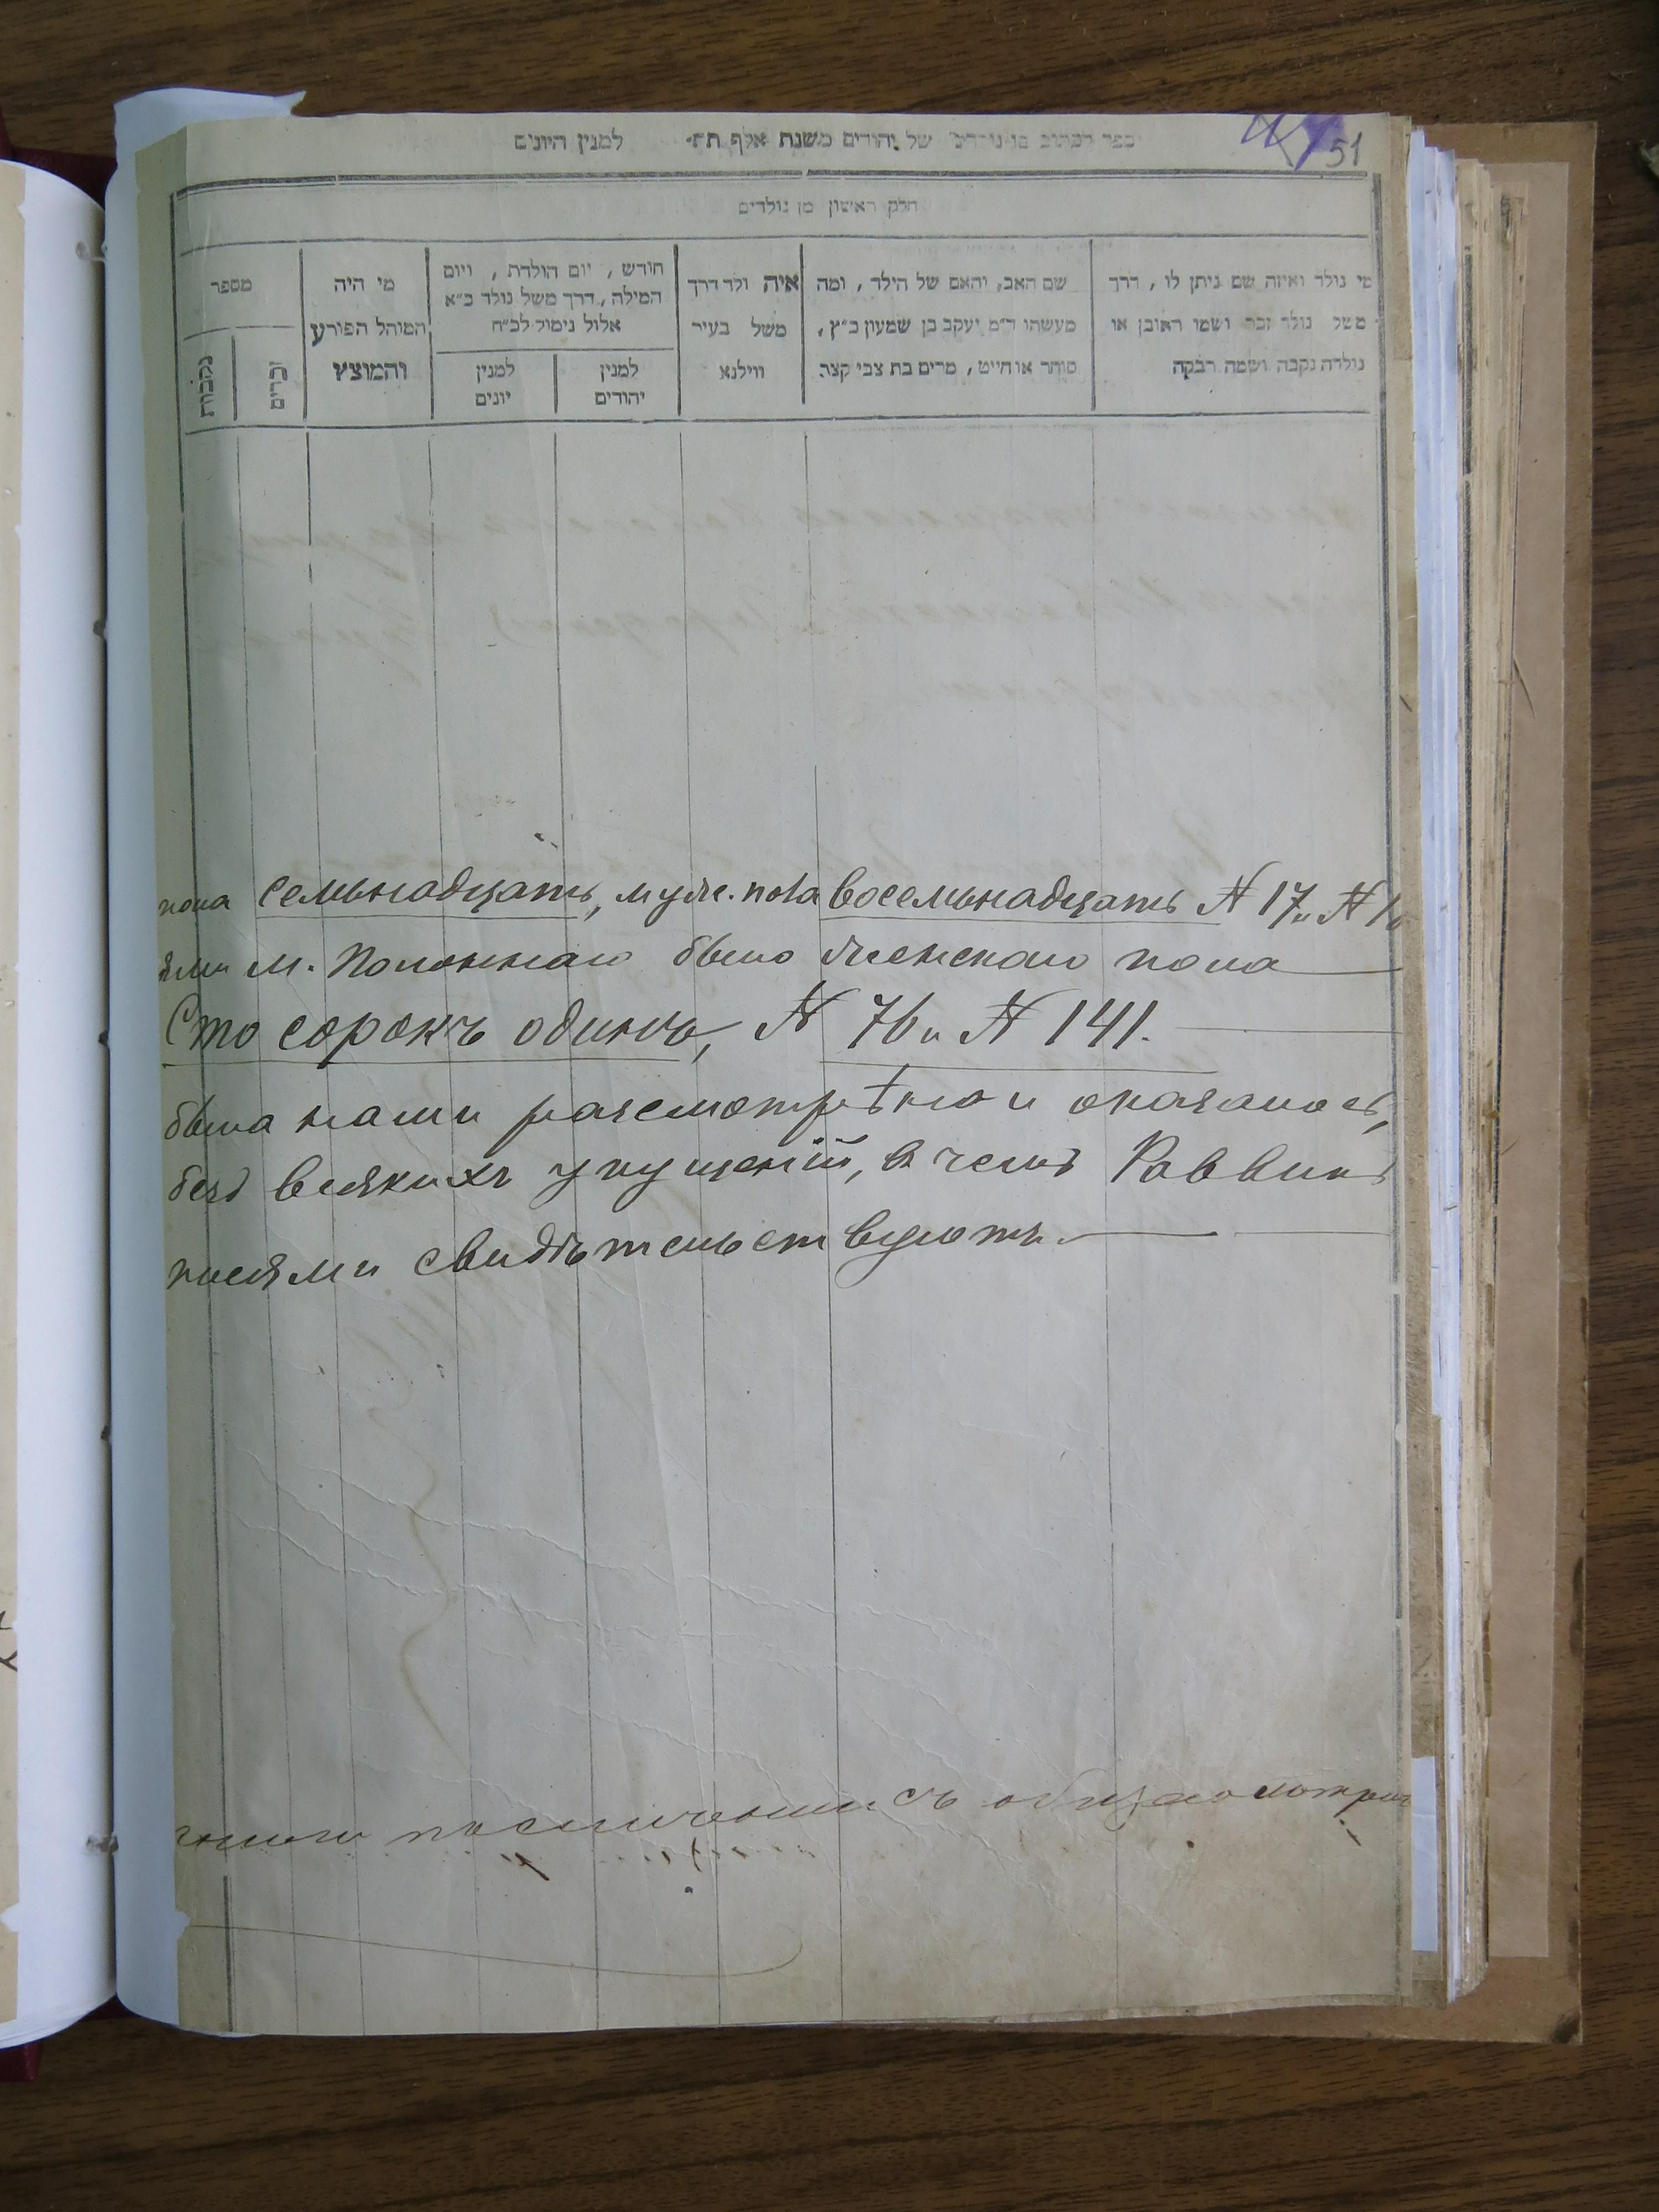 51
ספר לכתוב בו נולדים של יהודים משנת אלף תת׳ למנין היונים
חלק ראשון מן נולדים
מספר
נקבות
זכרים
מי היה
המוהל הפורע
והמוצץ
חודש, יום הולדת, ויום
המילה, דרך משל נולד כ״א
אלול נימול לכ״ח
למנין
יונים
למנין
יהודים
איה ולד דרך
משל בעיר
ווילנא
שם האב, והאם של הילד, ומה
מעשהו ד״מ יעקב בן שמעון כ״ץ,
סוחר או חייט, מרים בת צבי קצב
מי נולד ואיזה שם ניתן לו, דרך
משל נולד זכר ושמו ראובן או
נולדה נקבה ושמה רבקה
пола семьнадцать, муж. пола восемьнадцать № 17 и № 1
ями м. Полоннаго было женскаго пола
Сто сорокъ одинъ, № 76 и № 141.
была нами разсмотрѣно и оказалось,
безъ всякихъ упущеній, в чемъ Раввинъ
писями свидѣтельствуютъ.
съ